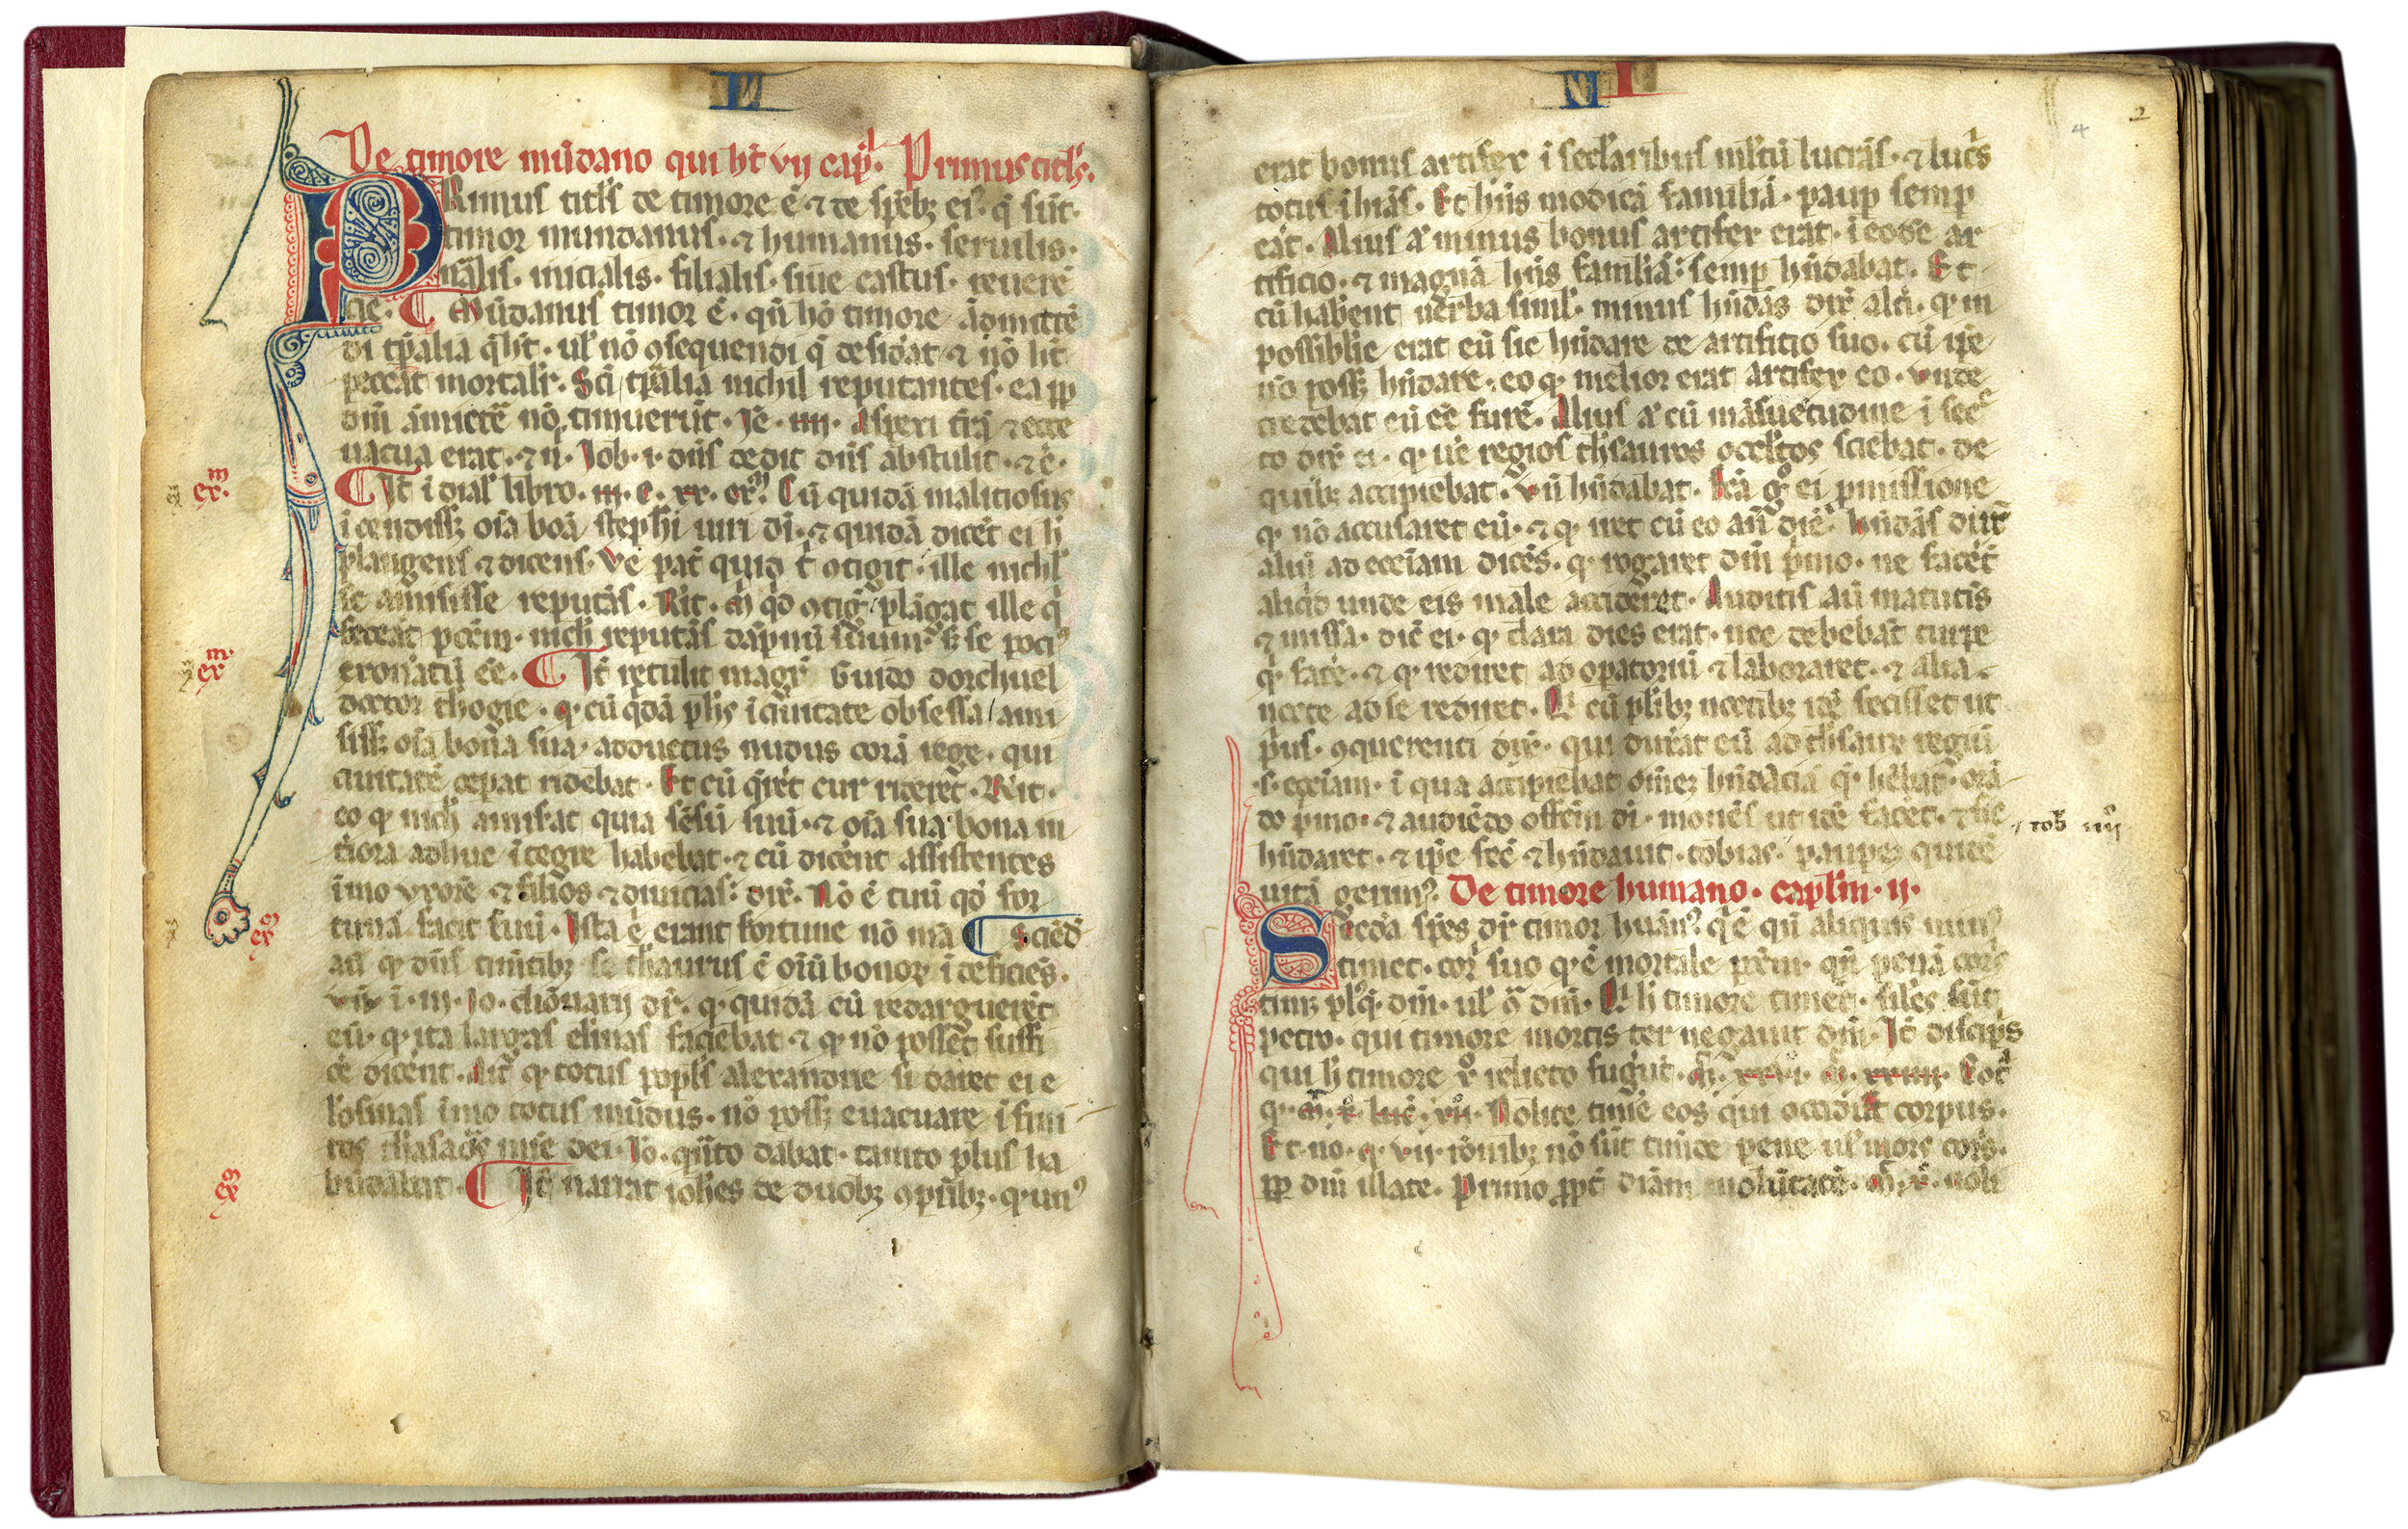 L
De timore mūdano qui ht̄ vij cap̄. Primus titl's.
Primus titl's de timore ē ⁊ de sp̄ebꝫ eiꝰ q̄ sūt.
timor mundanus. ⁊ humanus. seruilis.
n̄alis. inicialis. filialis. siue castus. reuerē
cie. Mūdanus timor ē. qn̄ hō timore āmittē
di tp̄alia
peccat mortalr̄. Sc̄i tp̄alia nichil reputantes. ea
dm̄ āmictē nō timuerūt. Je. iiij. Aspexi t̄rā ⁊ ecce
uacua erat. ⁊ n. Job. i. dn̄s dedit dn̄s abstulit. ⁊ c̄.
m
ex.
It̄ ī dial' libro. Cū quidā maliciosus
īcendissꝫ oīa bōa steph̄i uiri dī. ⁊ quidā dicēt ei
plangens ⁊ dicens. Ve pat̄ quid t̄ ꝯtigit. ille nichil
se amisisse reputās. Rn̄t. plāgat ille q̄
fecerat pccm̄. nich̄ reputās dāpnū suum. se pociꝰ
m.
ex
eronatū ēē. It̄ retulit magr̄ Guido dorchuel
doctor thogie. ꝙ cū qdā ph̄s ī ciuitate obsessa ami
sissꝫ oīa bona sua. adductus nudus corā rege. qui
ciuitatē cepat ridebat. Et cū q̄ret cur rideret. Rn̄t.
eo ꝙ nich̄ amiserat quia sēsū suū. ⁊ oīa sua bona in
tiora adhuc ītegre habebat. ⁊ cū dicēnt assistentes
īmo vxorē ⁊ filios ⁊ diuicias. dix̄. Nō ē tuū qd̄ for
m
ex
tuna facit suū. Ista ē erant fortune nō mā Sciēd
ā ꝙ dn̄s timētibꝫ se thaurus ē oīū bonoꝝ īdeficiēs.
Vn̄ ī. Jo. elīonarij dr̄. ꝙ quidā cū redargueret
eū. ꝙ ita largas elīnas faciebat ⁊ ꝙ nō posset suffi
ce dicent. Ait ꝙ totus popl's alexandrie si daret ei e
l'osinas īmo totus mūdus. nō possꝫ euacuare ī fini
tos thasaurs mīe dei. Jō. qn̄to dabat. tanto plus ha
m
ex
bundabat. It̄ narrat ioh̄es de duobꝫ ꝯpn̄bꝫ. ꝙ unꝰ
N I
4 2
erat bonus artifex ī sect̄aribus mltū lucrās. ⁊ lucr̄s
totus īhiās. Et hn̄s modicā familiā. paup semp
eat. Alius ā minus bonus artifex erat. ī eodē ar
tificio. ⁊ magnā hn̄s familiā: semp hūdabat. Et
cū habent uerba simul. minus hūdās dix̄ alt̄i. ꝙ im
possiblie erat eū sic hūdare de artificio suo. cū ip̄e
nō possꝫ hūdare. eo ꝙ melior erat artifex eo. vnde
credebat eū ēē furē. Alius ā cū māsuetudine ī sec̄
to dix̄ ei. ꝙ uē regios th̄sauros occl'tos sciebat. de
quibꝫ accipiebat. vn̄ hūdabat. Fc̄ā gͦ ei pmissione
ꝙ nō accusaret eū. ⁊ ꝙ iret cū eo añ diē. hūdās dux̄
aliū ad ecc̄iam dicēs. ꝙ rogaret dm̄ pīmo. ne facēt
aliq̄d unde eis male accideret. Auditis aū matutīs
⁊ missa. dic̄ ei. ꝙ clara dies erat. nec debebat turpe
q̄ facē. ⁊ ꝙ rediret ad opatoriū ⁊ laboraret. ⁊ alia
nocte ad se rediret. cū pl'ibꝫ noctibꝫ idē fecisset ut
pus. ꝯquerenti dix̄. qui duxat eū ad th̄saurꝝ regiū
.s. ecc̄iam. ī qua accipiebat om̄eꝫ hūdācia q̄ hēbat. orā
do pīmo. ⁊ audiēdo officm̄ dī. monēs ut idē facēt. ⁊ sic
tob iiij
hūdaret. ⁊ ip̄e fec̄ ⁊ hūdauit. tobias. pauperꝫ quidē
uitā gerimꝰ. De timore humano. caplm̄. ij.
Secda sp̄es dr̄ timor huānꝰ. q̄ ē qn̄ aliquis nimꝰ
timet. cor̄ suo q̄ ē mortale pccm̄. qn̄ penā cors̄
timꝫ plꝰ q̄ dm̄. ul' ꝯ̄ dm̄. h̄ timore timēt. sil'es sūt
petro. qui timore mortis ter negauit dm̄. It̄ discip̄s
qui h̄ timore x̄ relicto fugūt. m̄. xxvi. m̄. xxiiij.
m̄. x. luc̄. xij. Nolite timē eos qui occidūt corpus.
Et no. ꝙ vij. rōnibꝫ nō sūt timde pene ul' mors cors̄.
ꝓp dm̄ illate. Primo ꝓpt̄ diām uolūtatē. m̄. x̄. noli